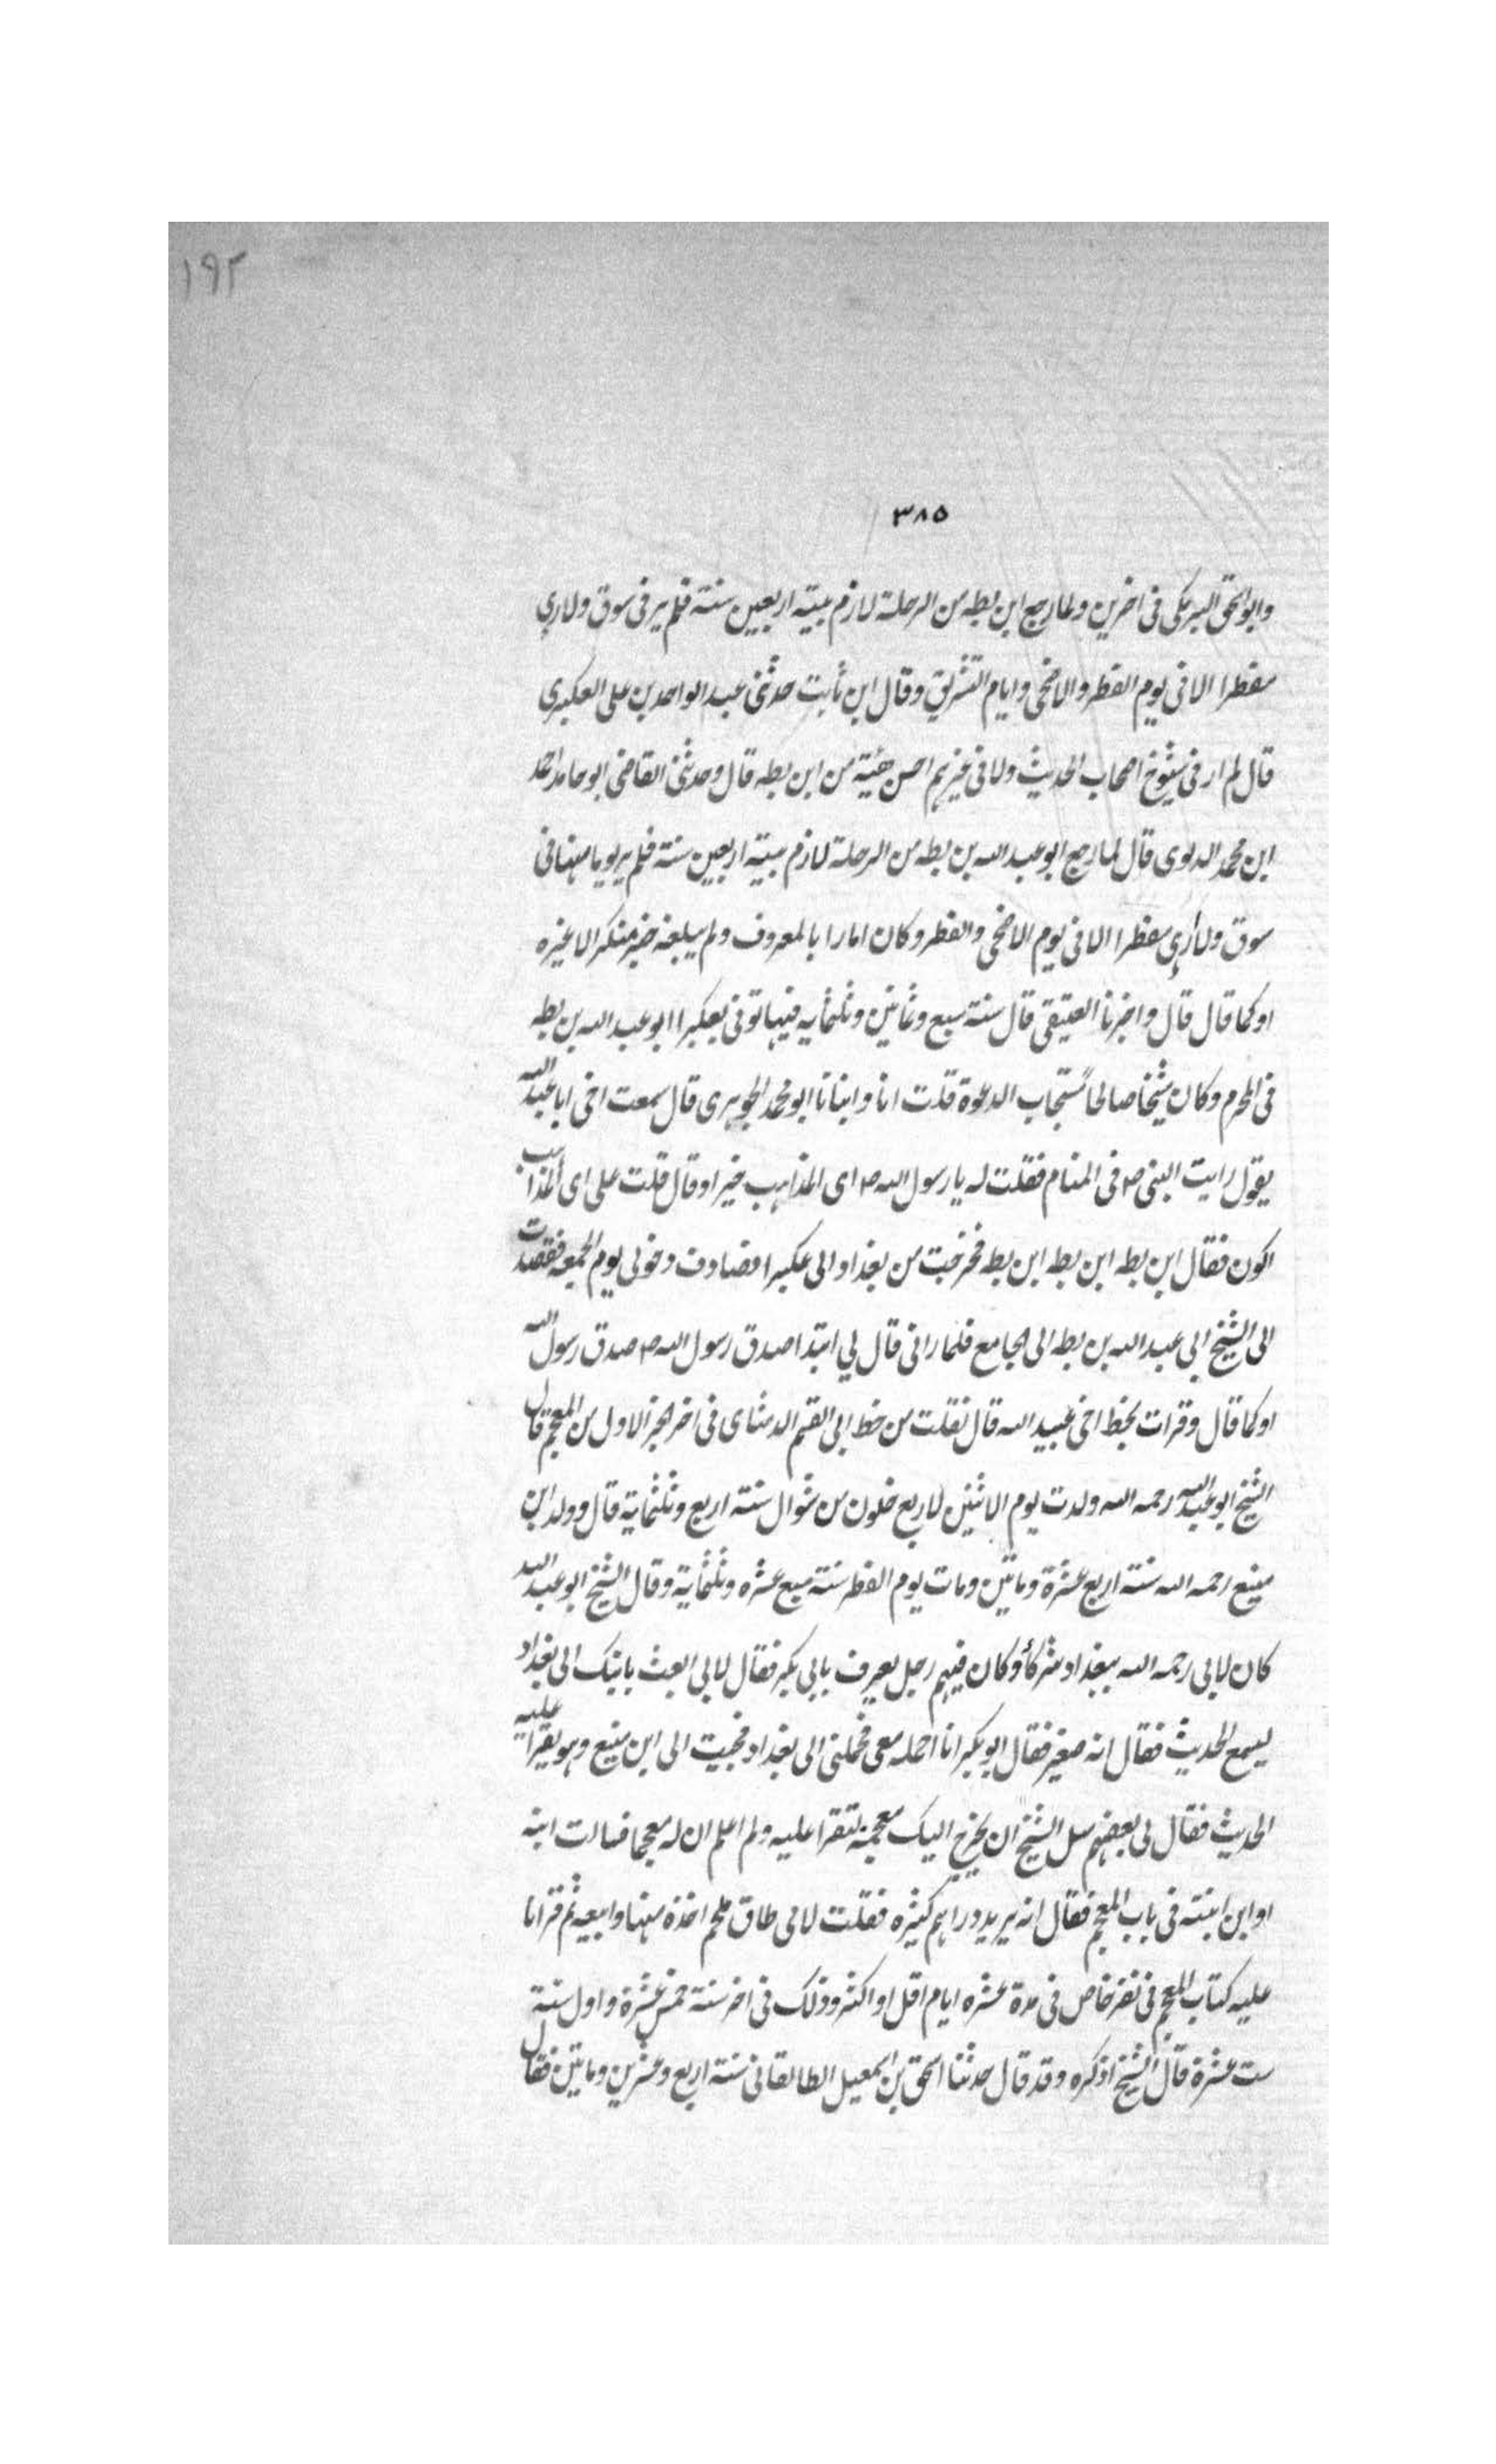 ١٩٢
٣٨٥
وابو اسحق البرمكى فى اخرين ولما رجع ابن بطه من الرحلة لازم بيته اربعين سنة فلم ير فى سوق ولا رءى
مفطرا الا فى يوم الفطر والاضحى وايام التشريق وقال ابن ثابت حدثنى عبد الواحد بن على العكبرى
قال لم ار فى شيوخ اصحاب الحديث ولا فى غيرهم احسن هيئة من ابن بطه قال وحدثنى القاضى ابو حامد احمد
ابن محمد الدلوى قال لما رجع ابو عبد الله بن بطه من الرحلة لازم بيته اربعين سنة فلم ير يوما منها فى
سوق ولا رأى مفطرا الا فى يوم الاضحى والفطر وكان امارا بالمعروف ولم يبلغه خبر منكر الا غيره
او كما قال قال واخبرنا العتيقى قال سنة سبع وثمانين وثلثمأيه فيها توفى بعكبرا ابو عبد الله بن بطه
فى المحرم وكان شيخا صالحاً مستجاب الدعوة قلت انا وانبانا ابو محمد الجوهرى قال سمعت اخى ابا عبد الله
يقول رايت النبى ص فى المنام فقلت له يا رسول الله ص اى المذاهب خير او قال قلت على اى المذاهب
اكون فقال ابن بطه ابن بطه ابن بطه فخرجت من بغداد الى عكبرا فصادف دخولى يوم الجمعه فقصدت
الى الشيخ ابى عبد الله بن بطه الى الجامع فلما رانى قال لي ابتدا صدق رسول الله ص صدق رسول الله
او كما قال وقرات بخط اخى عبيد الله قال نقلت من خط ابى القسم الدمثاى فى اخر الجز الاول من المعجم قال
الشيخ ابو عبد الله رحمه الله ولدت يوم الاثنين لاربع خلون من شوال سنة اربع وثلثماية قال وولد ابن
منيع رحمه الله سنة اربع عشرة وماتين ومات يوم الفطر سنة سبع عشره وثلثماية وقال الشيخ ابو عبد الله
كان لابى رحمه الله ببغداد شركأ وكان فيهم رجل يعرف بابى بكر فقال لابى ابعث بابنك الى بغداد
ليسمع الحديث فقال انه صغير فقال ابو بكر انا احمله معى فحملنى الى بغداد فجيت الى ابن منيع وهو يقرا عليه
الحديث فقال لى بعضهم سل الشيخ ان يخرج اليك معجمه لتقرا عليه ولم اعلم ان له معجما فسالت ابنه
او ابن ابنته فى باب المعجم فقال انه يريد دراهم كثيره فقلت لامى طاق ملحم اخذه منها وابيعه ثم قرانا
عليه كتاب المعجم فى نفر خاص فى مدة عشره ايام اقل او اكثر وذلك فى اخر سنة خمس عشرة واول سنة
ست عشرة قال الشيخ اذكره وقد قال حدثنا اسحق بن اسمعيل الطالقانى سنة اربع وعشرين وماتين فقال